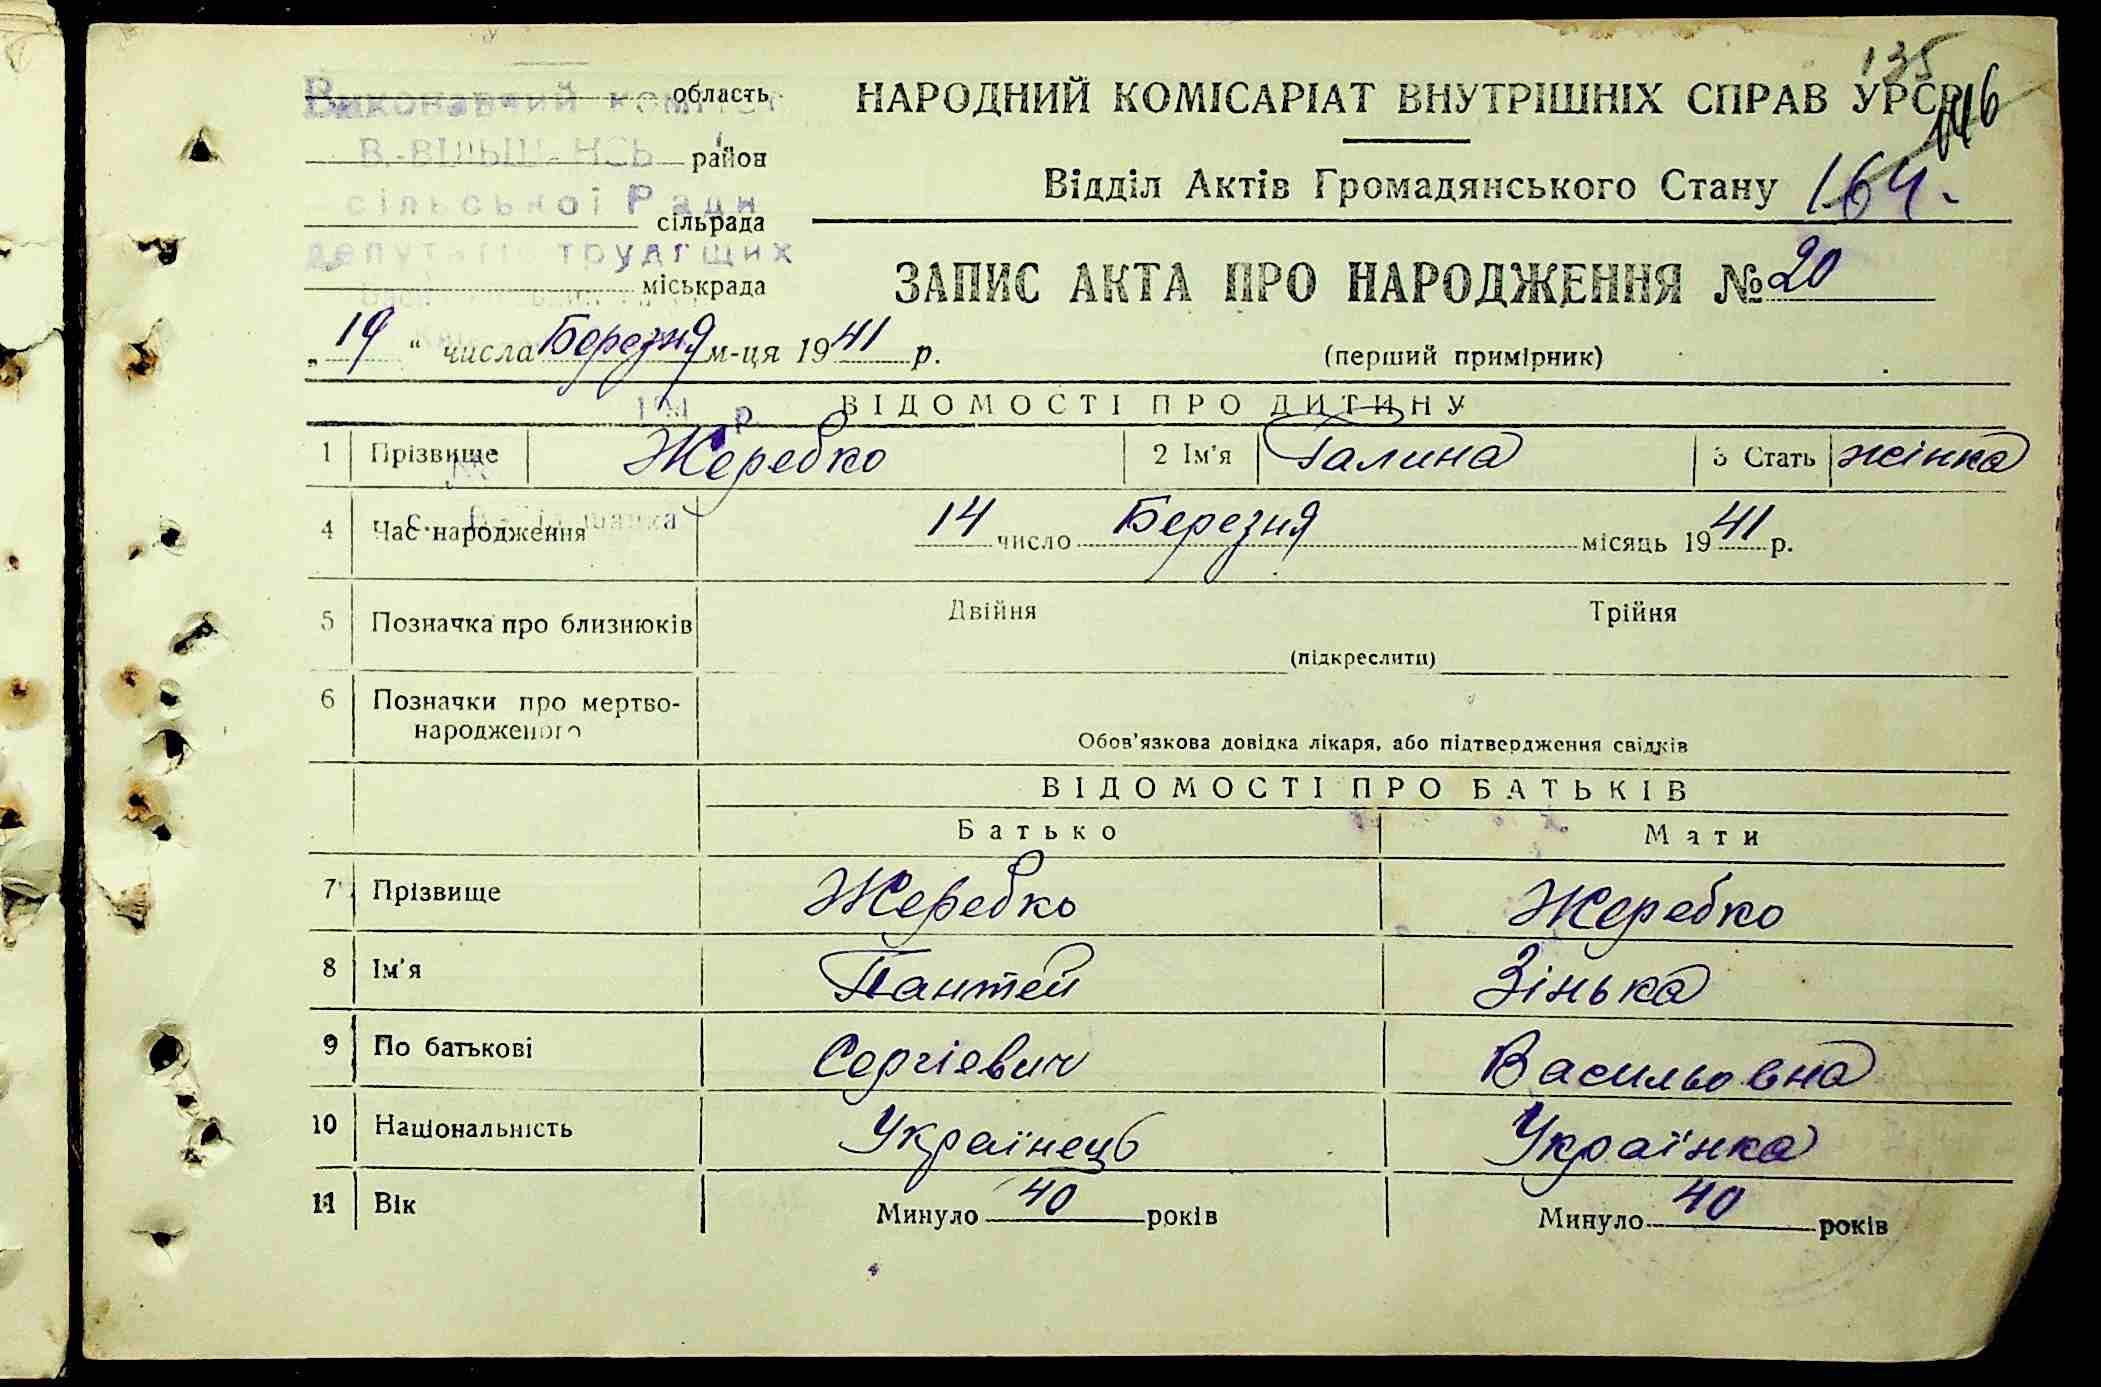 135
146
Виконавчий комітет область
НАРОДНИЙ КОМІСАРІАТ ВНУТРІШНІХ СПРАВ УРСР
район
Відділ Актів Громадянського Стану 164.
сільської Ради
сільрада
депутатів трудящих
міськрада
ЗАПИС АКТА ПРО НАРОДЖЕННЯ № 20
„19“ числа Березня м-ця 1941 р.
(перший примірник)
ВІДОМОСТІ ПРО ДИТИНУ
1 Прізвище Жеребко 2 Ім'я Галина 3 Стать жінка
4 Час народження 14 число Березня місяць 1941 р.
5 Позначка про близнюків Двійня Трійня
(підкреслити)
6 Позначки про мертво-
народженого
Обов'язкова довідка лікаря, або підтвердження свідків
ВІДОМОСТІ ПРО БАТЬКІВ
Батько Мати
7 Прізвище Жеребко Жеребко
8 Ім'я Пантей Зінька
9 По батькові Сергієвич Васильовна
10 Національність Українець Українка
11 Вік Минуло 40 років Минуло 40 років